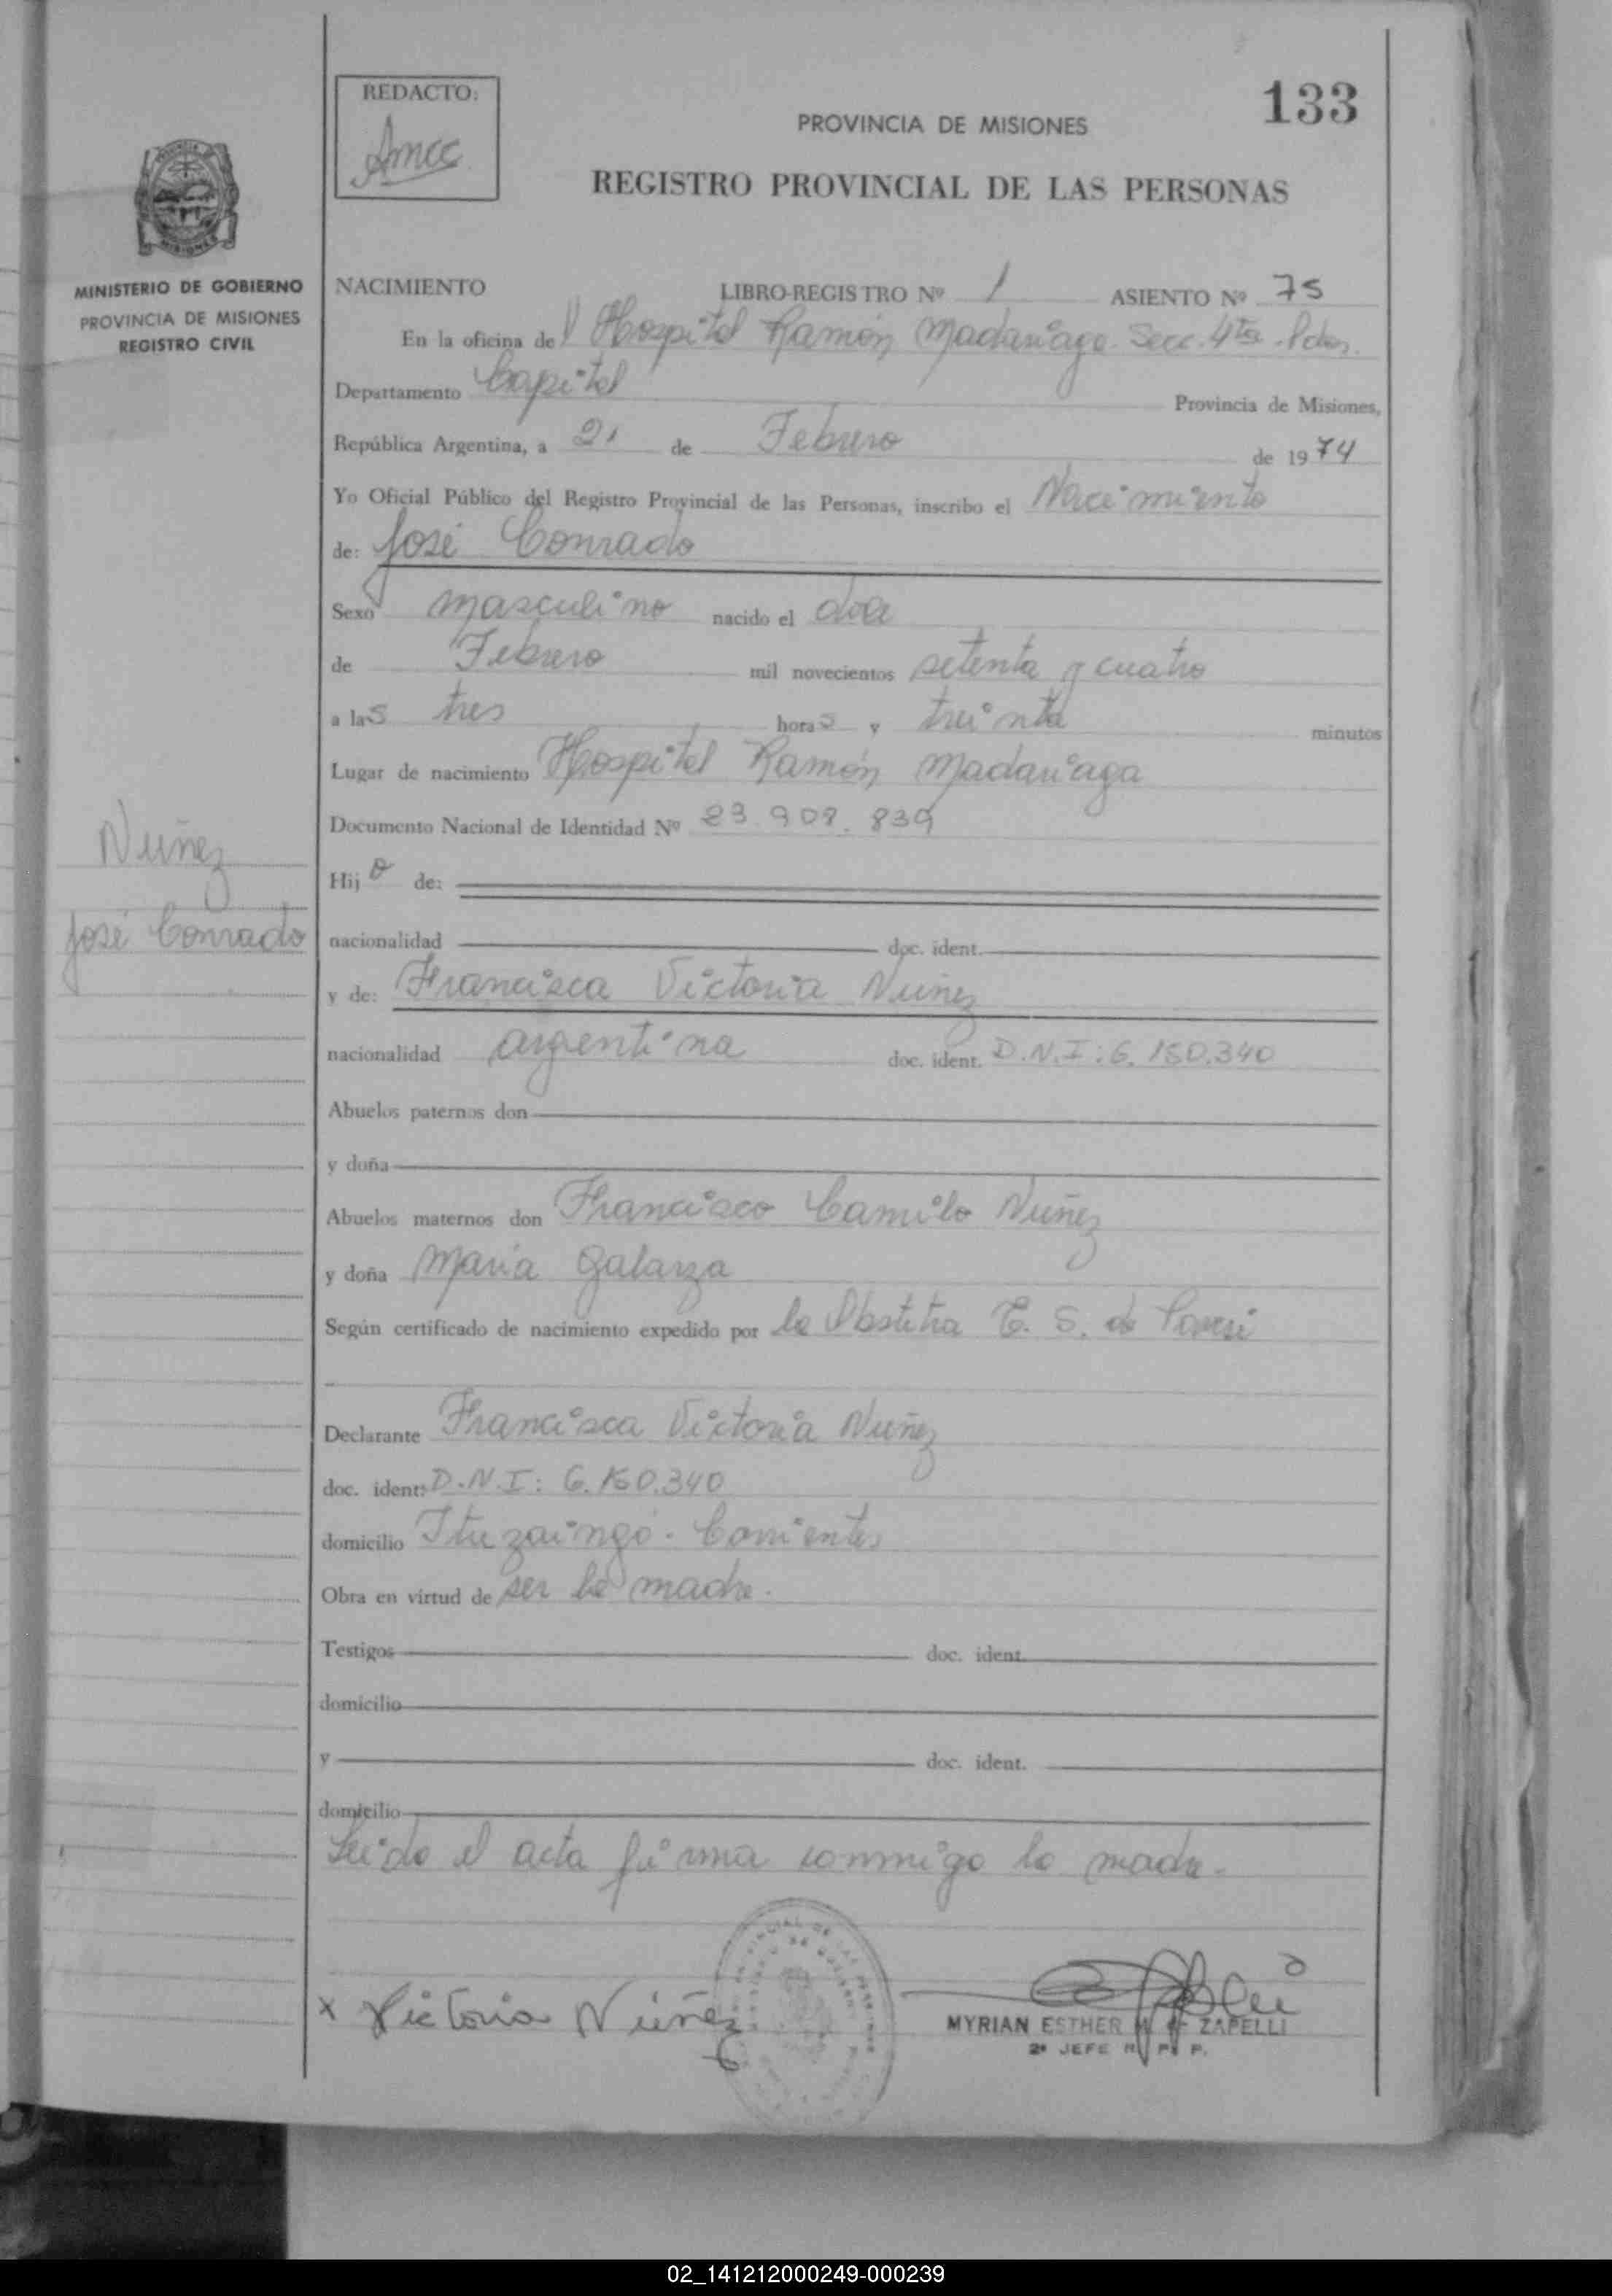 133
REDACTO:
Amcc
PROVINCIA DE MISIONES
REGISTRO PROVINCIAL DE LAS PERSONAS
MINISTERIO DE GOBIERNO
PROVINCIA DE MISIONES
REGISTRO CIVIL
NACIMIENTO LIBRO-REGISTRO Nº 1 ASIENTO Nº 75
En la oficina del Hospital Ramón Madariaga. Secc. 4ta. Pdas.
Departamento Capital Provincia de Misiones,
República Argentina, a 21 de Febrero de 1974
Yo Oficial Público del Registro Provincial de las Personas, inscribo el Nacimiento
de: José Conrado
Sexo masculino nacido el
de Febrero mil novecientos setenta y cuatro
a las tres horas y treinta minutos
Lugar de nacimiento Hospital Ramón Madariaga
Documento Nacional de Identidad Nº 23.908.839
Nuñez
José Conrado
Hijo de:
nacionalidad doc. ident.
y de: Francisca Victoria Nuñez
nacionalidad argentina doc. ident. D.N.I: 6.150.340
Abuelos paternos don
y doña
Abuelos maternos don Francisco Camilo Nuñez
y doña María Galarza
Según certificado de nacimiento expedido por la Obstetra E. S. de
Declarante Francisca Victoria Nuñez
doc. ident: D.N.I: 6.150.340
domicilio Ituzaingó - Corrientes
Obra en virtud de ser la madre.
Testigos doc. ident.
domicilio
y doc. ident.
domicilio
Leido el acta firma conmigo la madre.
x Victoria Núñez
MYRIAN ESTHER M. de ZAPELLI
2º JEFE R. P. P.
02_141212000249-000239